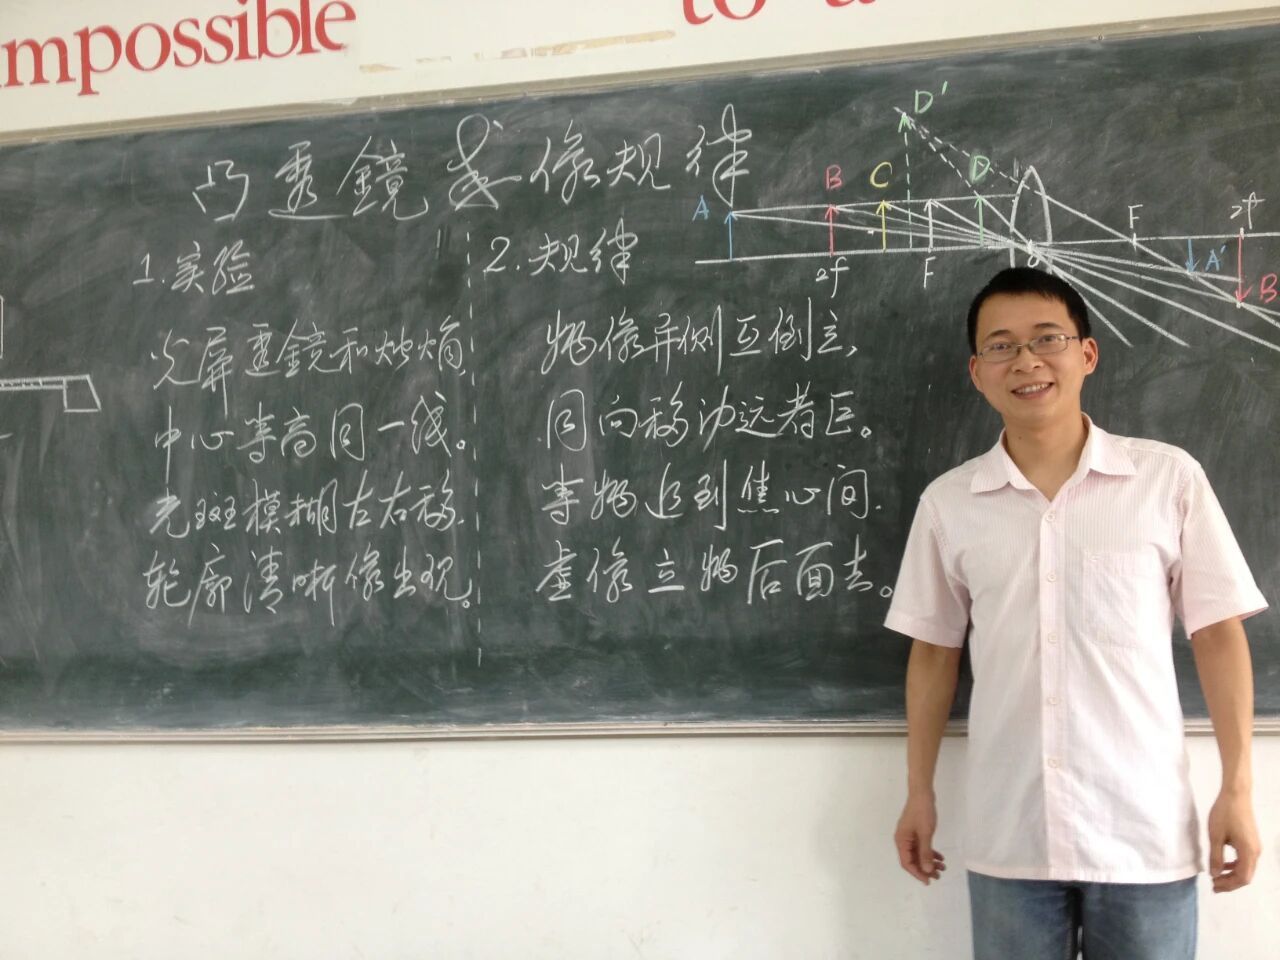 impossible
to a
凸透鏡成像规律
1.实验
光屏透鏡和烛焰
中心等高同一线。
光斑模糊左右移.
轮廓清晰像出现。
2.规律
物像异侧互倒立,
同向移动远者巨。
等物追到焦心间.
虚像立物后面去。
D'
A
B
C
D
F
2f
2f
F
O
A'
B